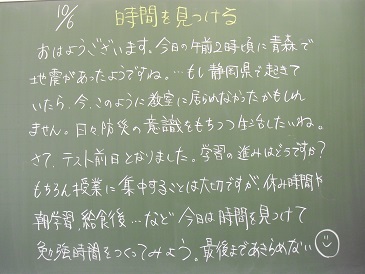 10/6 時間を見つける
おはようございます。今日の午前2時頃に青森で
地震があったようですね。…もし静岡県で起きて
いたら、今、このように教室に居られなかったかもしれ
ません。日々防災の意識をもちつつ生活したいね。
さて、テスト前日となりました。学習の進みはどうですか?
もちろん授業に集中することは大切ですが、休み時間や
朝学習、給食後…など 今日は時間を見つけて
勉強時間をつくってみよう。最後まであきらめない